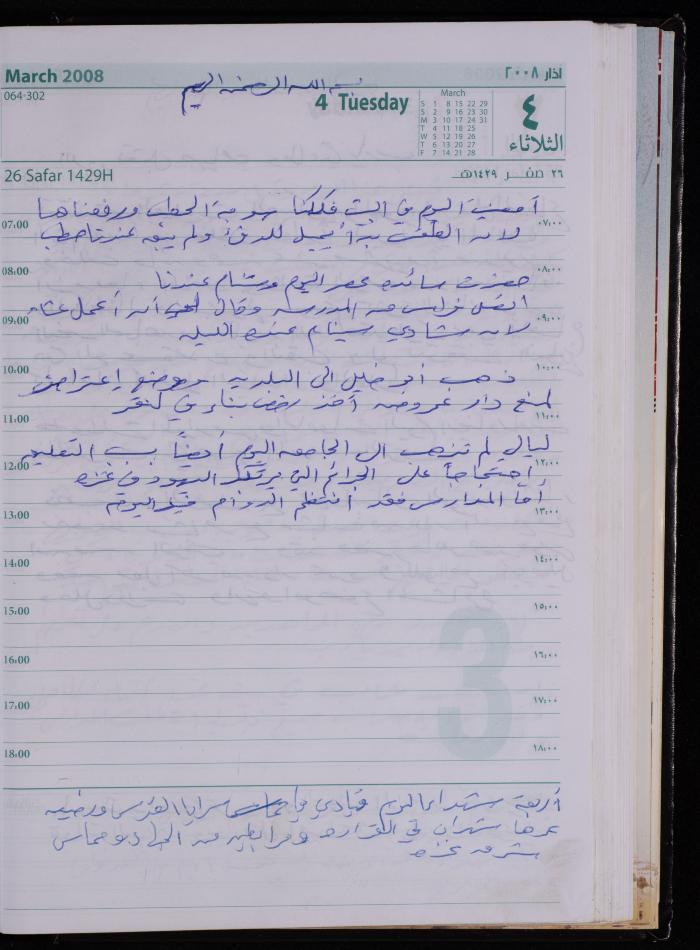 March 2008
اذار ٢٠٠٨
بسم الله الرحمن الرحيم
064-302
4 Tuesday
March
S 1 8 15 22 29
S 2 9 16 23 30
M 3 10 17 24 31
T 4 11 18 25
W 5 12 19 26
T 6 13 20 27
F 7 14 21 28
٤
الثلاثاء
26 Safar 1429H
٢٦ صفر ١٤٢٩هـ
أمضيت اليوم في البيت فككنا صوبة الحطب ورفعناها
07:00 ٠٧:٠٠
لانه الطقس بدأ يميل للدفئ ولم يبقه عندنا حطب
08:00 ٠٨:٠٠
حضرت سائده عصر اليوم وستنام عندنا
اتصل فراس من المدرسه وقال أنه أعمل عشاء
09:00 ٠٩:٠٠
لانه شادي سينام عنده الليله
10:00 ١٠:٠٠
ذهب أبو خليل الى البلديه إعتراض
لمنع دار عمرو من أخذ رخص بناء في
11:00 ١١:٠٠
ليالي لم تذهب الى الجامعه اليوم أيضاً بسبب التعليم
12:00 ١٢:٠٠
إحتجاجاً على الجرائم التي يرتكبها اليهود في غزه
أما المدارس فقد أنتظم الدوام فيها اليوم
13:00 ١٣:٠٠
14:00 ١٤:٠٠
15:00 ١٥:٠٠
16:00 ١٦:٠٠
17:00 ١٧:٠٠
18:00 ١٨:٠٠
3
أربعة شهداء اليوم قيادي سرايا القدس ورضيعه
عمرها شهران في القراره ومرابطين من الجهاد وحماس
شرق غزه